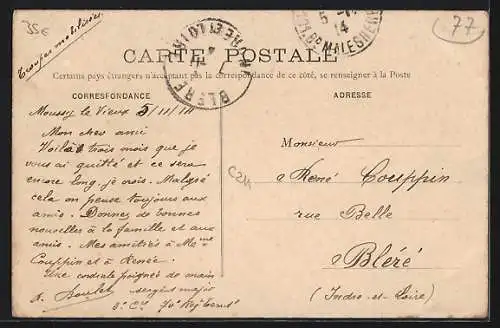 35€
Troupes mobilisées
CARTE POSTALE
BLÉRÉ
INDRE-ET-LOIRE
5
14
Bd MALESHERBES
77
Certains pays étrangers n'acceptant pas la correspondance de ce côté, se renseigner à la Poste
CORRESPONDANCE
Moussy le Vieux 5/11/14
Mon cher ami
Voilà trois mois que je
vous ai quitté et ce sera
encore long, je crois. Malgré
cela on pense toujours aux
amis. Donnez de bonnes
nouvelles à la famille et aux
amis. Mes amitiés à Mme
Couppin et à Renée.
Une cordiale poignée de main
sergent major
ADRESSE
Monsieur
René Couppin
rue Belle
à Bléré
(Indre-et-Loire)